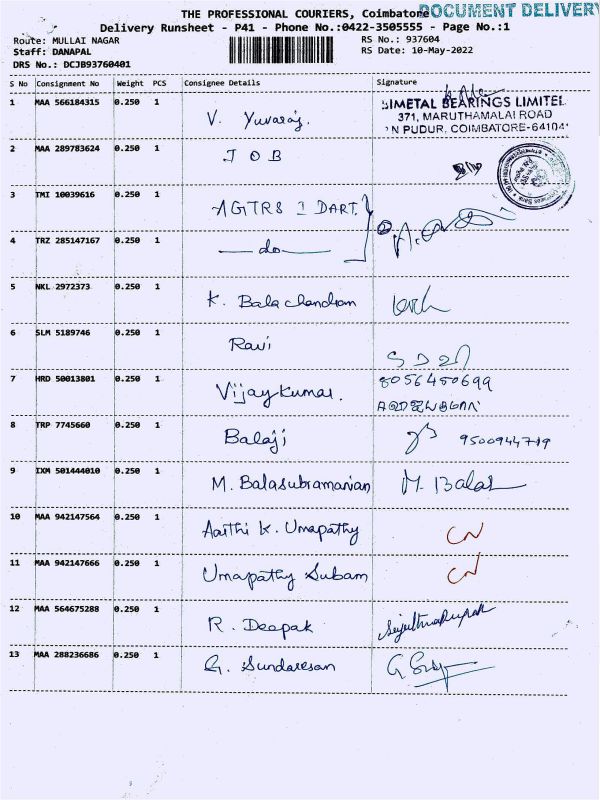 THE PROFESSIONAL COURIERS, Coimbatore
DOCUMENT DELIVERY
Delivery Runsheet - P41 - Phone No.:0422-3505555 - Page No.:1
Route: MULLAI NAGAR
RS No.: 937604
Staff: DANAPAL
RS Date: 10-May-2022
DRS No.: DCJB93760401
S No Consignment No Weight PCS Consignee Details Signature
1 MAA 566184315 0.250 1 V. Yuvaraj.
BIMETAL BEARINGS LIMITED
371, MARUTHAMALAI ROAD
N PUDUR, COIMBATORE-64104
2 MAA 289783624 0.250 1 I O B
3 TMI 10039616 0.250 1 AGTRS I DART.
4 TRZ 285147167 0.250 1 do
5 NKL 2972373 0.250 1 K. Bala chandran
6 SLM 5189746 0.250 1 Ravi
7 HRD 50013801 0.250 1 Vijay Kumar. 8056450699
8 TRP 7745660 0.250 1 Balaji 9500944719
9 IXM 501444010 0.250 1 M. Balasubramanian M. Balas
10 MAA 942147564 0.250 1 Aarthi K. Umapathy CN
11 MAA 942147666 0.250 1 Umapathy Subam CN
12 MAA 564675288 0.250 1 R. Deepak
13 MAA 288236686 0.250 1 G. Sundaresan